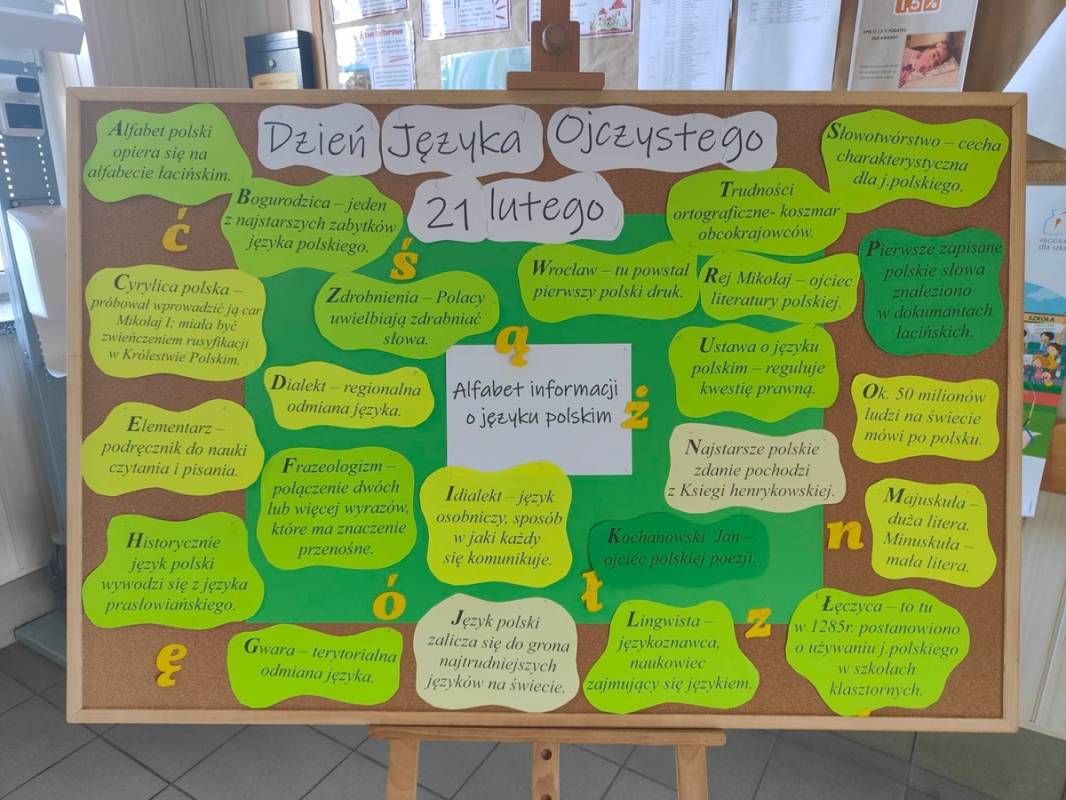 1,5%
Dzień Języka Ojczystego
21 lutego
Alfabet polski
opiera się na
alfabecie łacińskim.
Bogurodzica – jeden
z najstarszych zabytków
języka polskiego.
Trudności
ortograficzne- koszmar
obcokrajowców.
Słowotwórstwo – cecha
charakterystyczna
dla j.polskiego.
ć
ś
Cyrylica polska –
próbował wprowadzić ją car
Mikołaj I; miała być
zwieńczeniem rusyfikacji
w Królestwie Polskim.
Zdrobnienia – Polacy
uwielbiają zdrabniać
słowa.
Wrocław – tu powstał
pierwszy polski druk.
Rej Mikołaj – ojciec
literatury polskiej.
Pierwsze zapisane
polskie słowa
znaleziono
w dokumantach
łacińskich.
ą
Dialekt – regionalna
odmiana języka.
Alfabet informacji
o języku polskim
ż
Ustawa o języku
polskim – reguluje
kwestię prawną.
Ok. 50 milionów
ludzi na świecie
mówi po polsku.
Elementarz –
podręcznik do nauki
czytania i pisania.
Frazeologizm –
połączenie dwóch
lub więcej wyrazów,
które ma znaczenie
przenośne.
Idialekt – język
osobniczy, sposób
w jaki każdy
się komunikuje.
Najstarsze polskie
zdanie pochodzi
z Ksiegi henrykowskiej.
Kochanowski Jan –
ojciec polskiej poezji.
n
Majuskuła –
duża litera.
Minuskuła –
mała litera.
Historycznie
język polski
wywodzi się z języka
prasłowiańskiego.
ó
ł
z
ę
Gwara – terytorialna
odmiana języka.
Język polski
zalicza się do grona
najtrudniejszych
języków na świecie.
Lingwista –
językoznawca,
naukowiec
zajmujący się językiem.
Łęczyca – to tu
w 1285r. postanowiono
o używaniu j.polskiego
w szkołach
klasztornych.